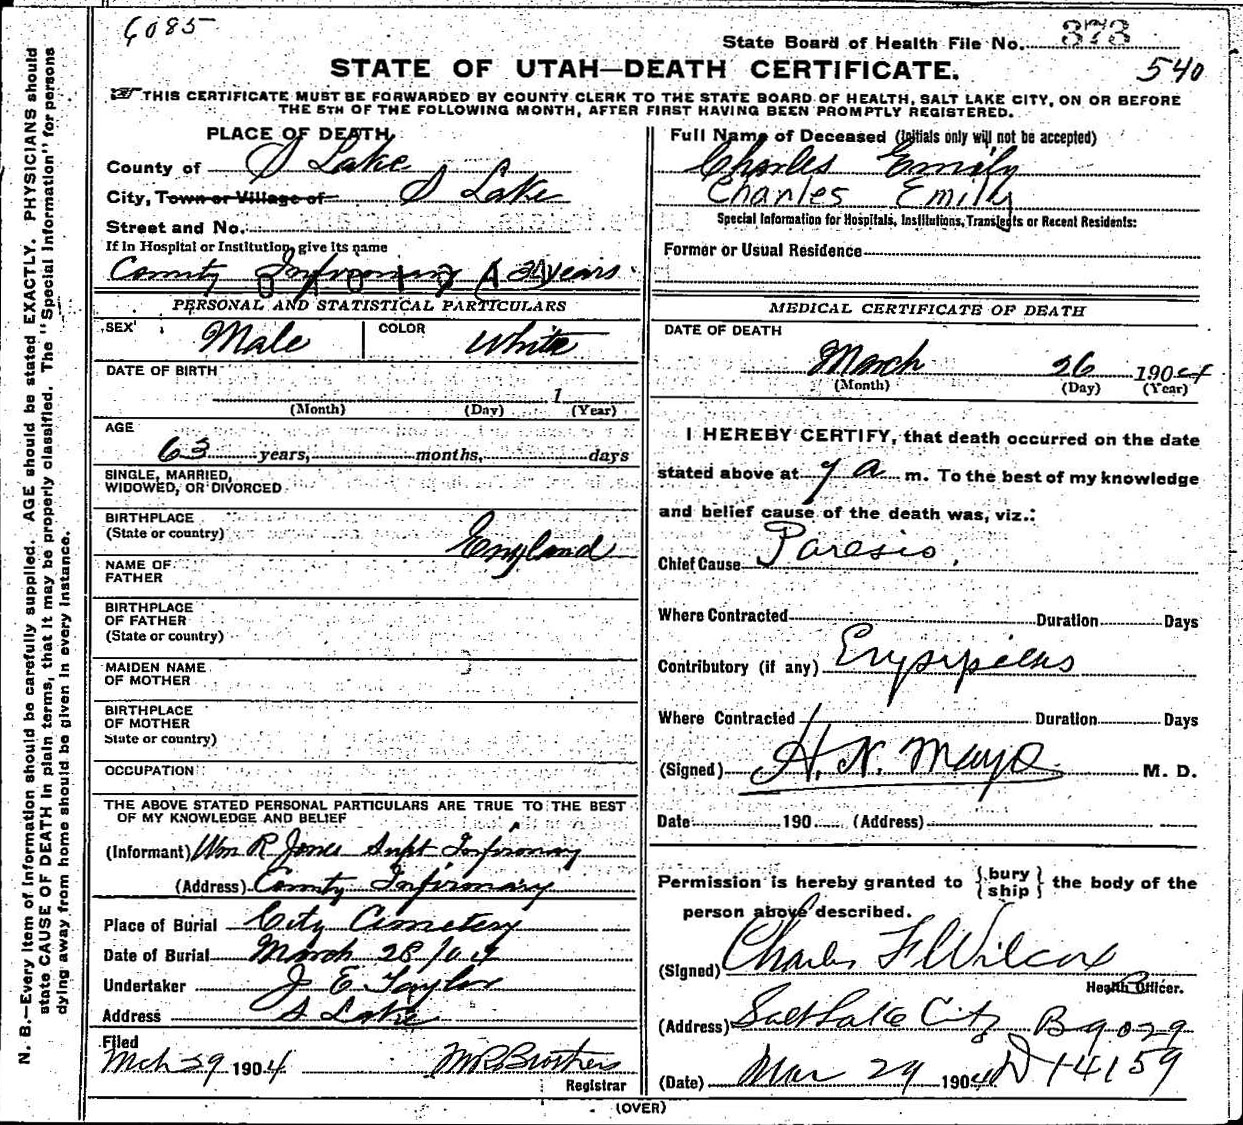 6085
State Board of Health File No. 373
540
STATE OF UTAH—DEATH CERTIFICATE.
THIS CERTIFICATE MUST BE FORWARDED BY COUNTY CLERK TO THE STATE BOARD OF HEALTH, SALT LAKE CITY, ON OR BEFORE
THE 5TH OF THE FOLLOWING MONTH, AFTER FIRST HAVING BEEN PROMPTLY REGISTERED.
PLACE OF DEATH
County of S Lake
City, Town or Village of S Lake
Street and No.
If in Hospital or Institution, give its name
County Infirmary years
PERSONAL AND STATISTICAL PARTICULARS
SEX Male COLOR White
DATE OF BIRTH
1
(Month) (Day) (Year)
AGE
63 years, months, days
SINGLE, MARRIED,
WIDOWED, OR DIVORCED
BIRTHPLACE
(State or country) England
NAME OF
FATHER
BIRTHPLACE
OF FATHER
(State or country)
MAIDEN NAME
OF MOTHER
BIRTHPLACE
OF MOTHER
State or country)
OCCUPATION
THE ABOVE STATED PERSONAL PARTICULARS ARE TRUE TO THE BEST
OF MY KNOWLEDGE AND BELIEF
(Informant) Wm R Jones Supt Infirmary
(Address) County Infirmary
Place of Burial City Cemetery
Date of Burial March 28/04
Undertaker J E Taylor
Address S Lake
Filed
Mch 29 1904 M R Brothers
Registrar
Full Name of Deceased (Initials only will not be accepted)
Charles Emily
Charles Emily
Special Information for Hospitals, Institutions, Transients or Recent Residents:
Former or Usual Residence
MEDICAL CERTIFICATE OF DEATH
DATE OF DEATH
March 26 1904
(Month) (Day) (Year)
I HEREBY CERTIFY, that death occurred on the date
stated above at 7 a m. To the best of my knowledge
and belief cause of the death was, viz.:
Chief Cause Paresis,
Where Contracted Duration Days
Contributory (if any) Erysipelas
Where Contracted Duration Days
(Signed) H. N. Mayo M. D.
Date 190 (Address)
Permission is hereby granted to {bury
ship} the body of the
person above described.
(Signed) Charles F Wilcox
Health Officer.
(Address) Salt Lake City B 9029
(Date) Mar 29 1904 D 14159
(OVER)
N. B.—Every item of information should be carefully supplied. AGE should be stated EXACTLY. PHYSICIANS should
state CAUSE OF DEATH in plain terms, that it may be properly classified. The "Special Information" for persons
dying away from home should be given in every instance.